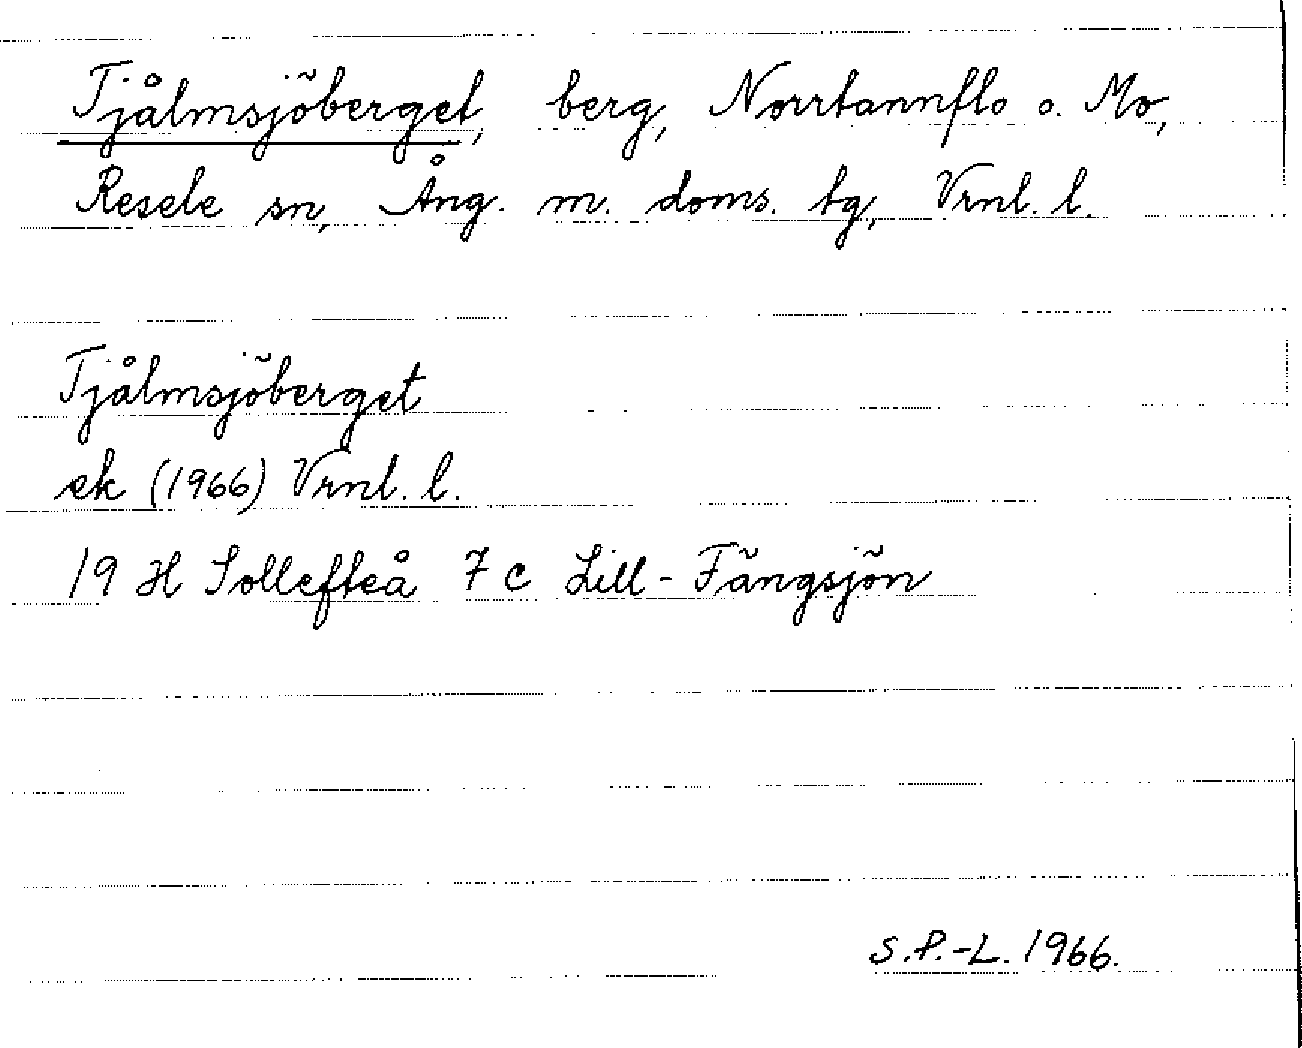 Tjålmsjöberget, berg, Norrtannflo o. Mo,
Resele sn, Ång. m. doms. tg, Vrnl. l.
Tjålmsjöberget
ek (1966) Vrnl. l.
19 H Sollefteå 7 c Lill-Fängsjön
S.P.-L. 1966.